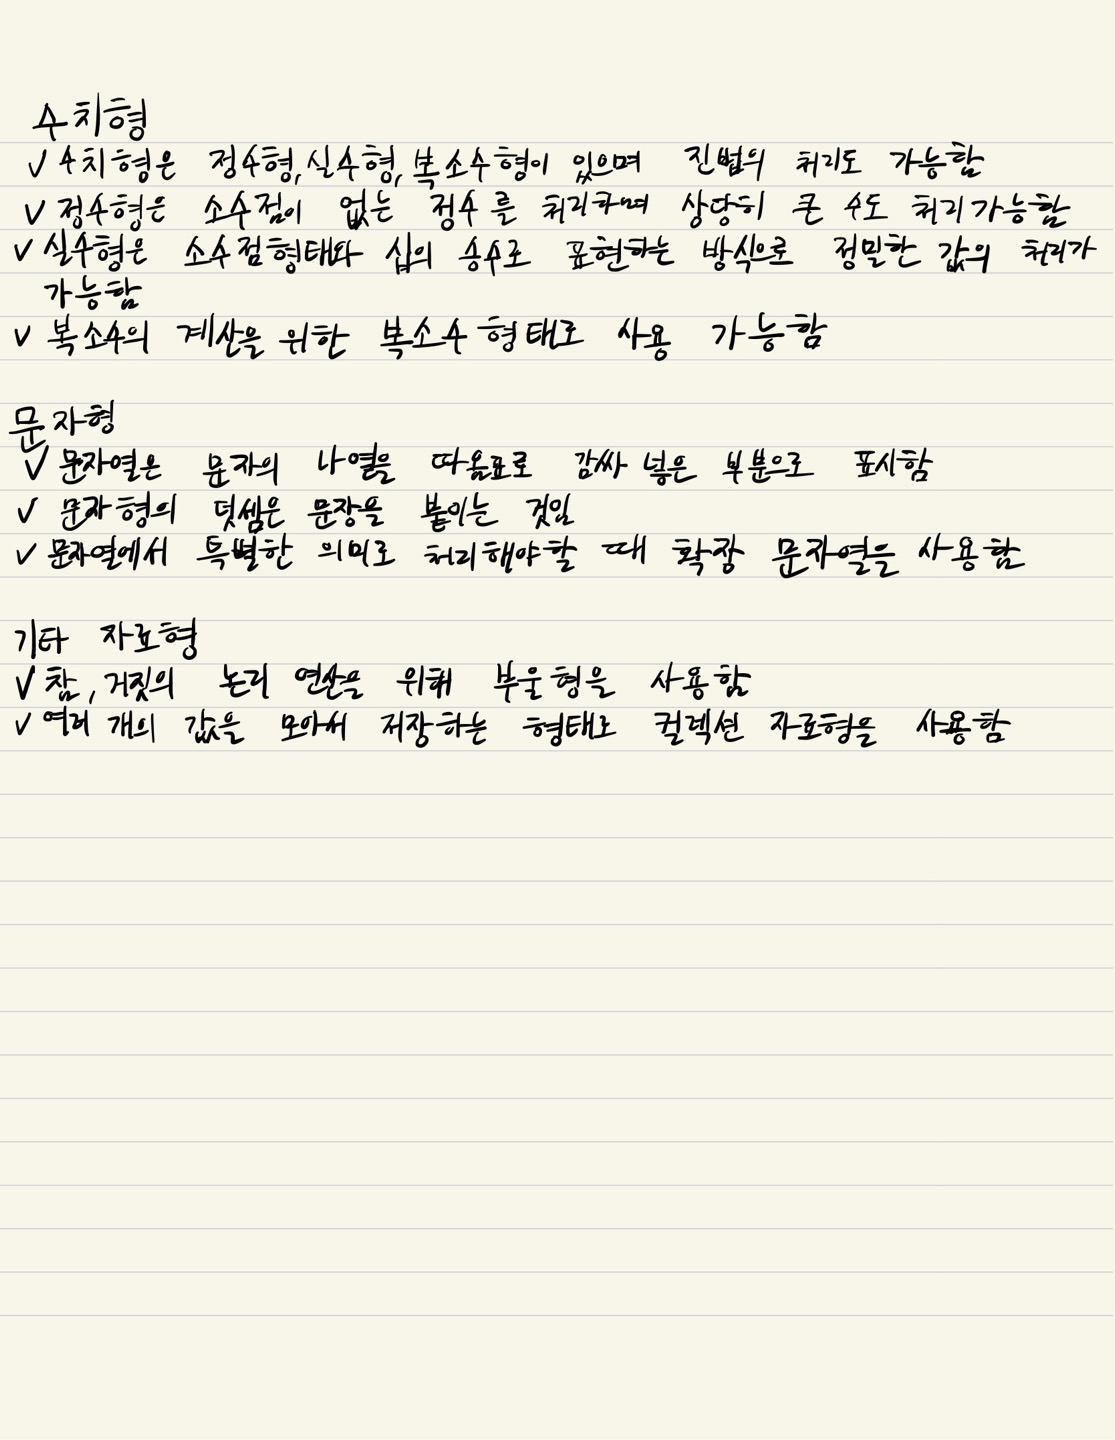 수치형
✓ 수치형은 정수형, 실수형, 복소수형이 있으며 진법의 처리도 가능함
✓ 정수형은 소수점이 없는 정수를 처리하며 상당히 큰 수도 처리가능함
✓ 실수형은 소수점형태와 십의 승수로 표현하는 방식으로 정밀한 값의 처리가
가능함
✓ 복소수의 계산을 위한 복소수 형태로 사용 가능함
문자형
✓ 문자열은 문자의 나열을 따옴표로 감싸 넣은 부분으로 표시함
✓ 문자형의 덧셈은 문장을 붙이는 것임
✓ 문자열에서 특별한 의미로 처리해야할 때 확장 문자열을 사용함
기타 자료형
✓ 참, 거짓의 논리 연산을 위해 부울형을 사용함
✓ 여러 개의 값을 모아서 저장하는 형태로 컬렉션 자료형을 사용함